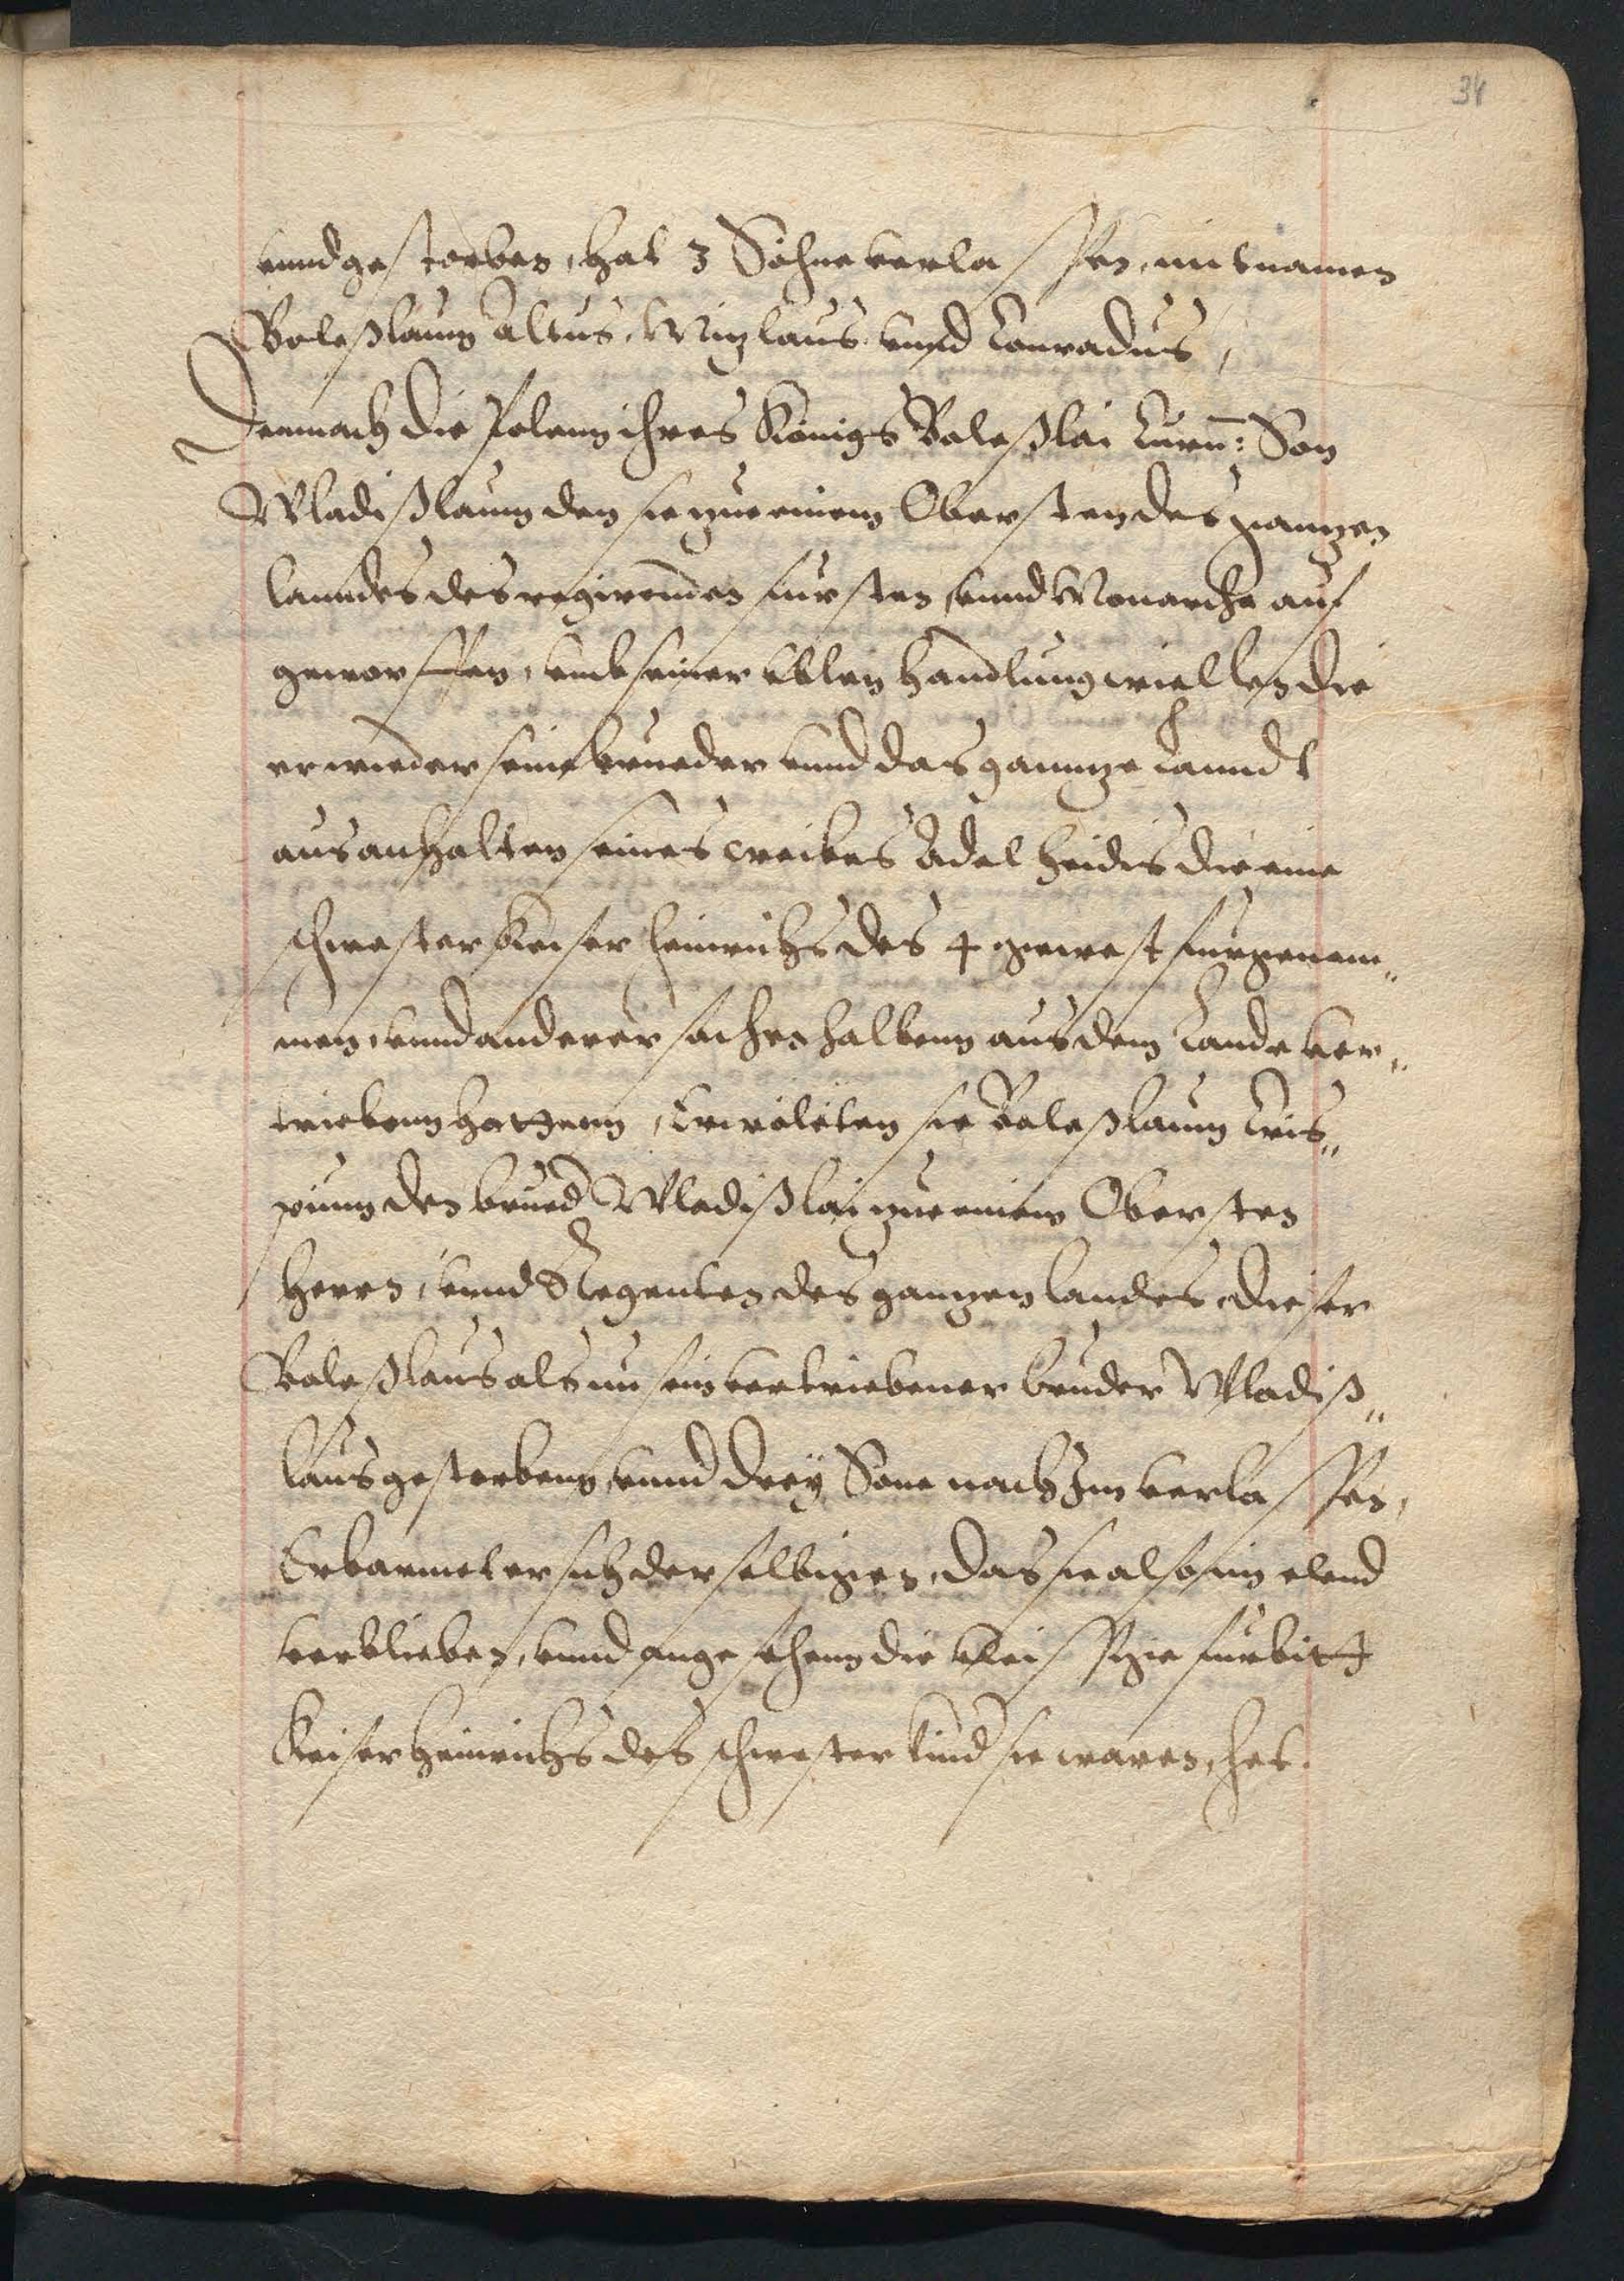 34
vnnd gestorben, hat 3 Söhne verlassen, mit namen
Boleßlaum Altus, Mizlaus vnnd Conradus,
Demnach die Polenn ihres Königs Boleßlai Curu: Son
Wladißlaum den sie zue einem Obersten des ganzen
lanndes des regirenden fursten, vnnd Monarche auf
geworffen, vmb seiner vblen handlung wiellen die
er wieder seine brueder vnnd das gannze Lanndt
aus anhalten seines weibes Adelheidis die eine
schwester Keiser Heinrichs des 4 gewest furgenom„
men, vnnd anderer sachen halbenn aus dem Lande ver„
triebenn hattenn, Erwöleten sie Boleßlaum Cris„
pum den brued Wladißlai zue einem Obersten
Herrn, vnnd Regenten des ganzen landes, dieser
Boleßlaus als nu sein vertriebener bruder Wladiß„
laus gestorbenn, vnnd drey Sone nach Im verlassen,
Erbarmet er sich der selbigen, das sie also im elend
verblieben, vnnd angesehenn die vleissige furbitt
Keiser Heinrichs des schwester kind sie waren, hat.